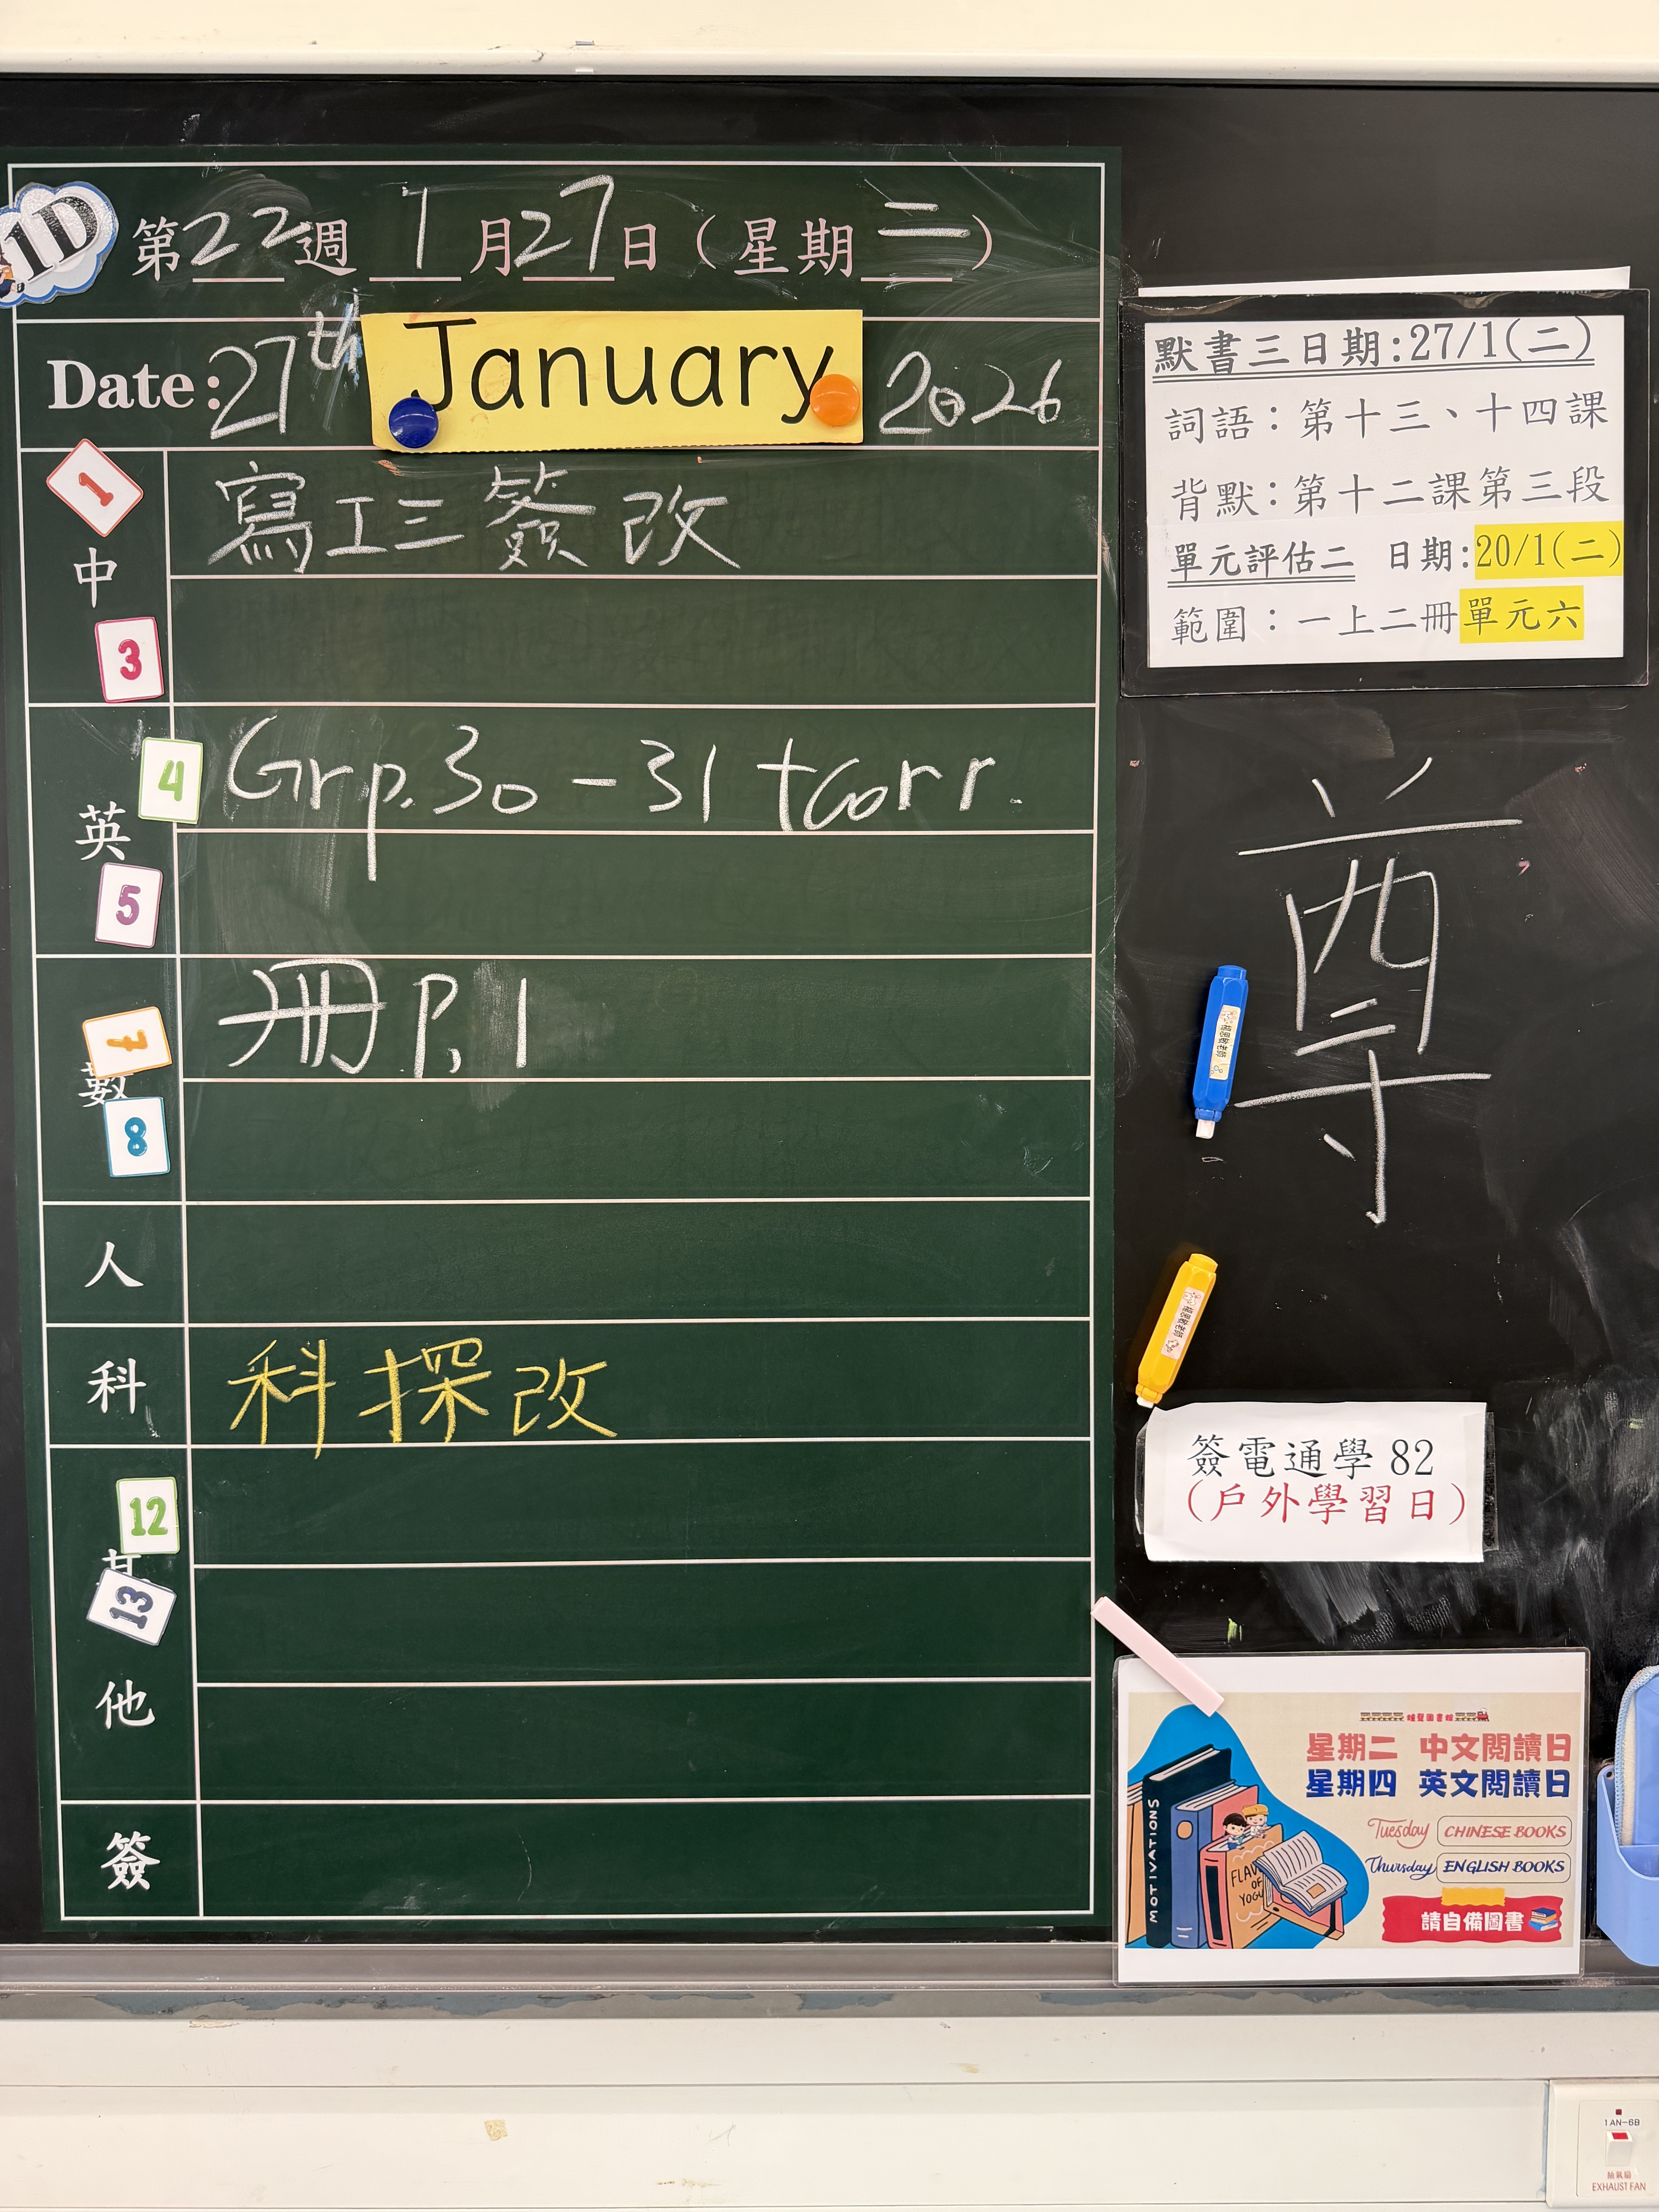 1D
第22週 1月27日（星期二）
Date: 27th January 2026
1
中
寫工三簽改
3
4
英
Grp.30-31 + corr.
5
冊P.1
7
數
8
人
科
科探改
12
其
13
他
簽
默書三日期:27/1(二)
詞語：第十三、十四課
背默：第十二課第三段
單元評估二 日期:20/1(二)
範圍：一上二冊單元六
尊
簽電通學82
（戶外學習日）
星期二 中文閱讀日
星期四 英文閱讀日
Tuesday CHINESE BOOKS
Thursday ENGLISH BOOKS
請自備圖書
MOTIVATIONS
FLAV
OF
YOGU
1AN-6B
抽氣扇
EXHAUST FAN